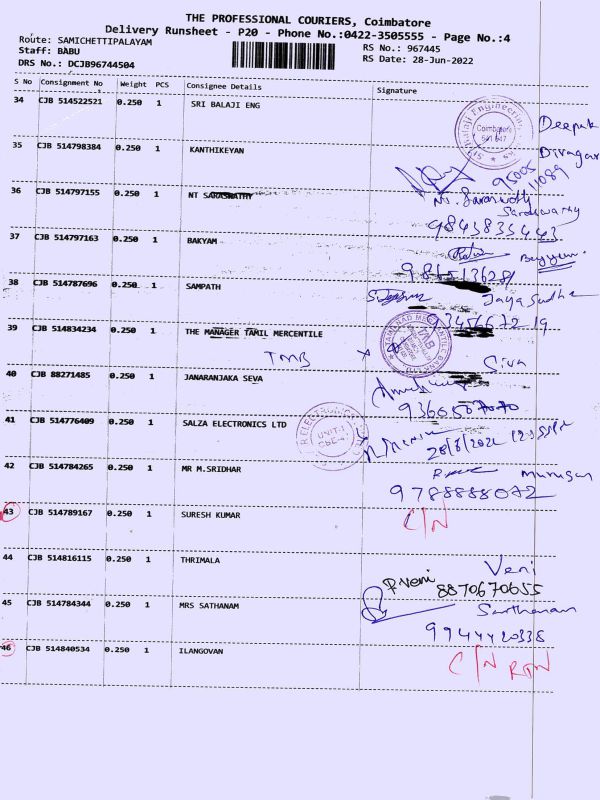 THE PROFESSIONAL COURIERS, Coimbatore
Delivery Runsheet - P20 - Phone No.:0422-3505555 - Page No.:4
Route: SAMICHETTIPALAYAM
RS No.: 967445
Staff: BABU
RS Date: 28-Jun-2022
DRS No.: DCJB96744504
S No Consignment No Weight PCS Consignee Details Signature
34 CJB 514522521 0.250 1 SRI BALAJI ENG
Sri Balaji Engineering
Coimbatore
641 047
Deepak
35 CJB 514798384 0.250 1 KANTHIKEYAN
Divagar
36 CJB 514797155 0.250 1 NT SARASWATHY
Nt. Saraswathy
Saraswathy
9843833443
37 CJB 514797163 0.250 1 BAKYAM
38 CJB 514787696 0.250 1 SAMPATH
Jaya Sudha
39 CJB 514834234 0.250 1 THE MANAGER TAMIL MERCANTILE
TMB
TMB
Siva
40 CJB 88271485 1 JANARANJAKA SEVA
41 CJB 514776409 0.250 1 SALZA ELECTRONICS LTD
UNIT-I
28/6/2022
42 CJB 514784265 0.250 1 MR M.SRIDHAR
Murugan
9788888072
43 CJB 514789167 0.250 1 SURESH KUMAR
C/N
44 CJB 514816115 0.250 1 THRIMALA
Veni
P.Veni
8870670655
45 CJB 514784344 0.250 1 MRS SATHANAM
Santhanam
9944420338
46 CJB 514840534 0.250 1 ILANGOVAN
C/N